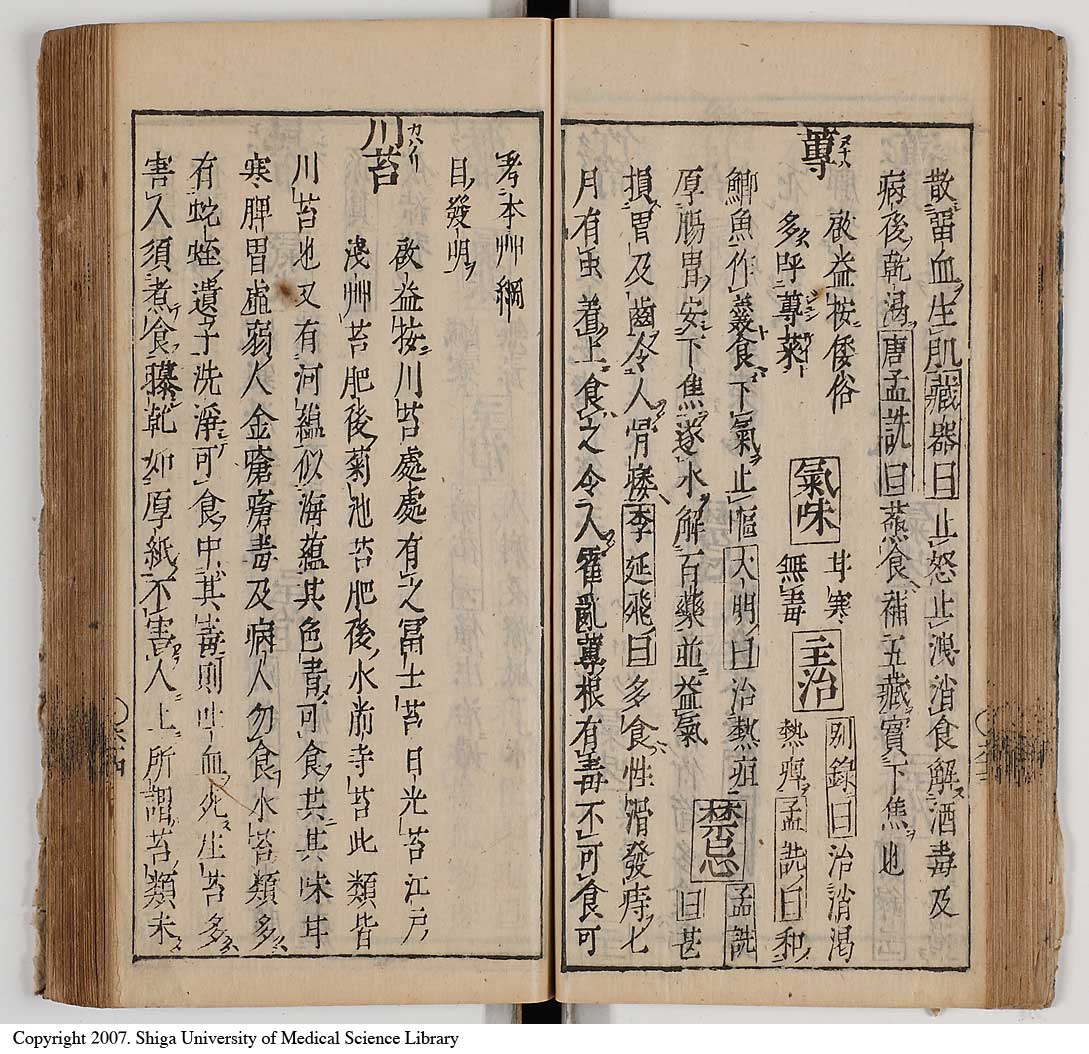 散畱血生肌藏器曰止怒止洩消食解酒毒及
病後乾渇唐孟詵曰蒸食補五藏實下焦也
蓴 ヌナハ 啟益按倭俗多呼蓴菜 氣味 甘寒無毒 主治 別錄曰治消渇熱痺孟詵曰和
鯽魚作羹食下氣止嘔大明曰治熱疸 禁忌 孟詵曰甚
厚腸胃安下焦逐水解百藥並益氣
損胃及齒令人骨痿李延飛曰多食性滑發痔七
月有虫着上食之令人霍亂蓴根有毒不可食可
考本艸綱
目發明
川苔 カハノリ
啟益按川苔處處有之冨士苔日光苔江戸
淺艸苔肥後菊池苔肥後水前寺苔此類皆
川苔也又有河蘊似海蘊其色青可食共其味甘
寒脾胃虚弱人金瘡瘡毒及病人勿食水苔類多
有蛇蛭遺子洗淨可食中其毒則吐血死生苔多
害人須煮食曝乾如厚紙不害人上所謂苔類未
Copyright 2007. Shiga University of Medical Science Library